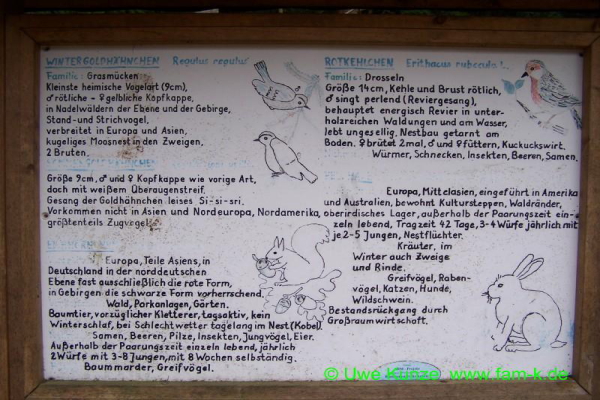 WINTERGOLDHÄHNCHEN Regulus regulus
Familie: Grasmücken
Kleinste heimische Vogelart (9cm),
♂ rötliche - ♀ gelbliche Kopfkappe,
in Nadelwäldern der Ebene und der Gebirge,
Stand- und Strichvogel,
verbreitet in Europa und Asien,
kugeliges Moosnest in den Zweigen,
2 Bruten.
Größe 9cm, ♂ und ♀ Kopfkappe wie vorige Art,
doch mit weißem Überaugenstreif.
Gesang der Goldhähnchen leises Si-si-sri.
Vorkommen nicht in Asien und Nordeuropa, Nordamerika,
größtenteils Zugvögel.
Europa, Teile Asiens, in
Deutschland in der norddeutschen
Ebene fast ausschließlich die rote Form,
in Gebirgen die schwarze Form vorherrschend.
Wald, Parkanlagen, Gärten.
Baumtier, vorzüglicher Kletterer, tagsaktiv, kein
Winterschlaf, bei Schlechtwetter tagelang im Nest (Kobel).
Samen, Beeren, Pilze, Insekten, Jungvögel, Eier.
Außerhalb der Paarungszeit einzeln lebend, jährlich
2 Würfe mit 3-8 Jungen, mit 8 Wochen selbständig.
Baummarder, Greifvögel.
ROTKEHLCHEN Erithacus rubecula L.
Familie: Drosseln
Größe 14cm, Kehle und Brust rötlich,
♂ singt perlend (Reviergesang),
behauptet energisch Revier in unter-
holzreichen Waldungen und am Wasser,
lebt ungesellig. Nestbau getarnt am
Boden. ♀ brütet 2mal, ♂ und ♀ füttern, Kuckuckswirt.
Würmer, Schnecken, Insekten, Beeren, Samen.
Europa, Mittelasien, eingeführt in Amerika
und Australien, bewohnt Kultursteppen, Waldränder,
oberirdisches Lager, außerhalb der Paarungszeit ein-
zeln lebend, Tragzeit 42 Tage, 3-4 Würfe jährlich mit
je 2-5 Jungen, Nestflüchter.
Kräuter, im
Winter auch Zweige
und Rinde.
Greifvögel, Raben-
vögel, Katzen, Hunde,
Wildschwein.
Bestandsrückgang durch
Großraumwirtschaft.
© Uwe Kunze www.fam-k.de